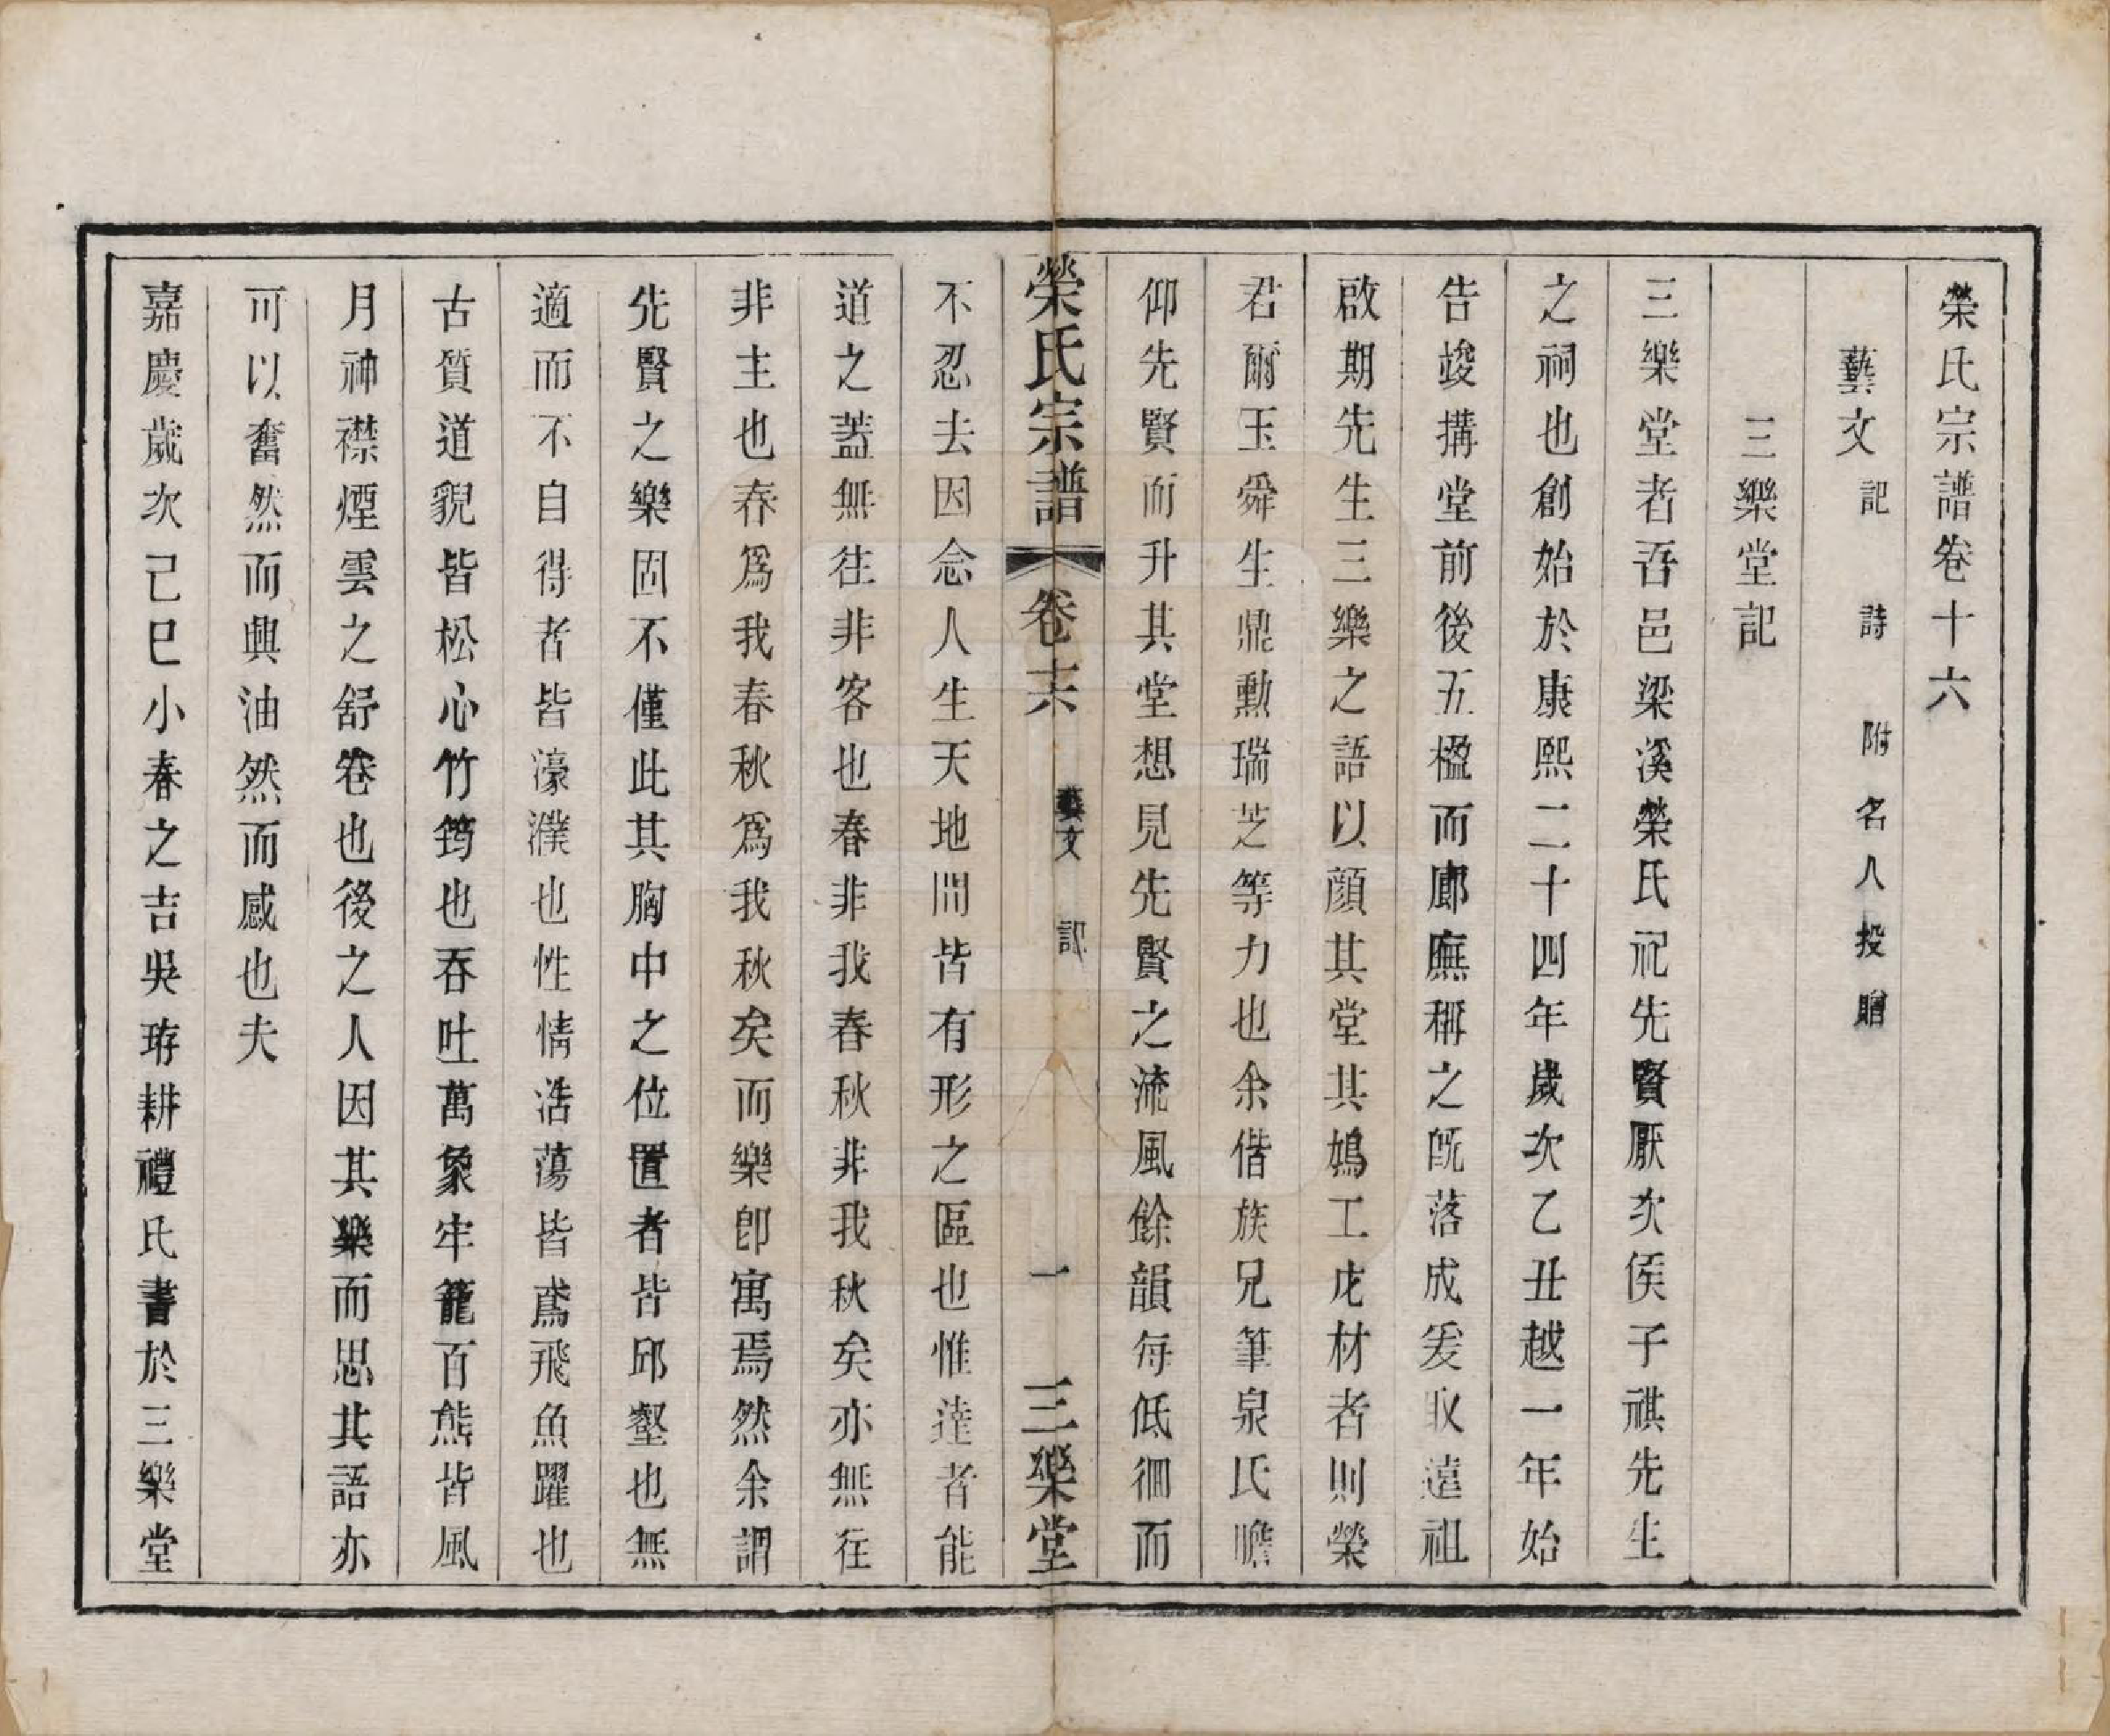 榮氏宗譜卷十六
藝文 記 詩 附名人投贈
三樂堂記
三樂堂者吾邑梁溪榮氏祀先賢厥次侯子祺先生
之祠也創始於康熙二十四年歲次乙丑越一年始
告竣搆堂前後五楹而廊廡稱之旣落成爰取遠祖
啟期先生三樂之語以顔其堂其鳩工庀材者則榮
君爾玉舜生鼎勳瑞芝等力也余偕族兄筆泉氏瞻
仰先賢而升其堂想見先賢之流風餘韻每低徊而
榮氏宗譜 卷十六 藝文 記 一 三樂堂
不忍去因念人生天地間皆有形之區也惟達者能
道之蓋無往非客也春非我春秋非我秋矣亦無往
非主也春爲我春秋爲我秋矣而樂卽寓焉然余謂
先賢之樂固不僅此其胸中之位置者皆邱壑也無
適而不自得者皆濠濮也性情浩蕩皆鳶飛魚躍也
古質道貌皆松心竹筠也吞吐萬象牢籠百態皆風
月神襟煙雲之舒卷也後之人因其樂而思其語亦
可以奮然而興油然而感也夫
嘉慶歲次己巳小春之吉吳珔耕禮氏書於三樂堂